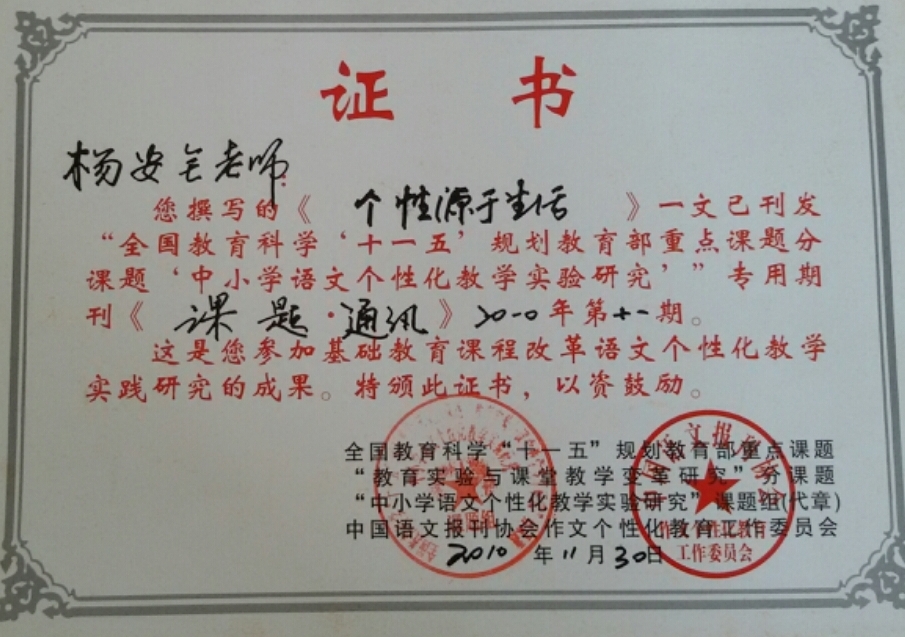 证 书
杨安全老师:
您撰写的《 个性源于生活 》一文已刊发
“全国教育科学‘十一五’规划教育部重点课题分
课题‘中小学语文个性化教学实验研究’”专用期
刊《 课题·通讯 》二〇一〇年第十一期。
这是您参加基础教育课程改革语文个性化教学
实践研究的成果。特颁此证书，以资鼓励。
全国教育科学“十一五”规划教育部重点课题
“教育实验与课堂教学变革研究”分课题
“中小学语文个性化教学实验研究”课题组(代章)
中国语文报刊协会作文个性化教育工作委员会
2010 年 11 月 30 日
中国语文报刊协会
作文个性化教育
工作委员会